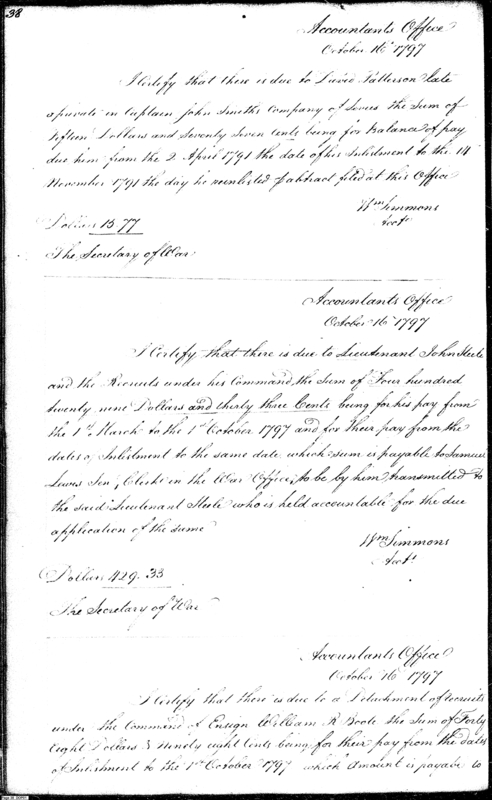 38
Accountants Office
October 16th 1797
I Certify that there is due to David Patterson late
a private in Captain John Smiths Company of Levies the Sum of
fifteen Dollars and Seventy Seven Cents being for Balance of pay
due him from the 2 April 1791 the date of his Inlistment to the 14
November 1791 the day he reenlisted p abstract filed at this Office
Wm Simmons
Acct
Dollars 15 77
The Secretary of War
Accountants Office
October 16th 1797
I Certify that there is due to Lieutenant John Steele
and the Recruits under his Command the Sum of Four hundred
twenty nine Dollars and thirty three Cents being for his pay from
the 1st March to the 1st October 1797 and for their pay from the
dates of Inlistment to the same date which sum is payable to Samuel
Lewis Sen, Clerk in the War Office, to be by him transmitted to
the said Lieutenant Steele who is held accountable for the due
application of the same
Wm Simmons
Acct
Dollars 429.33
The Secretary of War
Accountants Office
October 16th 1797
I Certify that there is due to a Detachment of recruits
under the Command of Ensign William R Boote the Sum of Forty
Eight Dollars & Ninety eight Cents being for their pay from the dates
of Inlistment to the 1st October 1797 which Amount is payable to